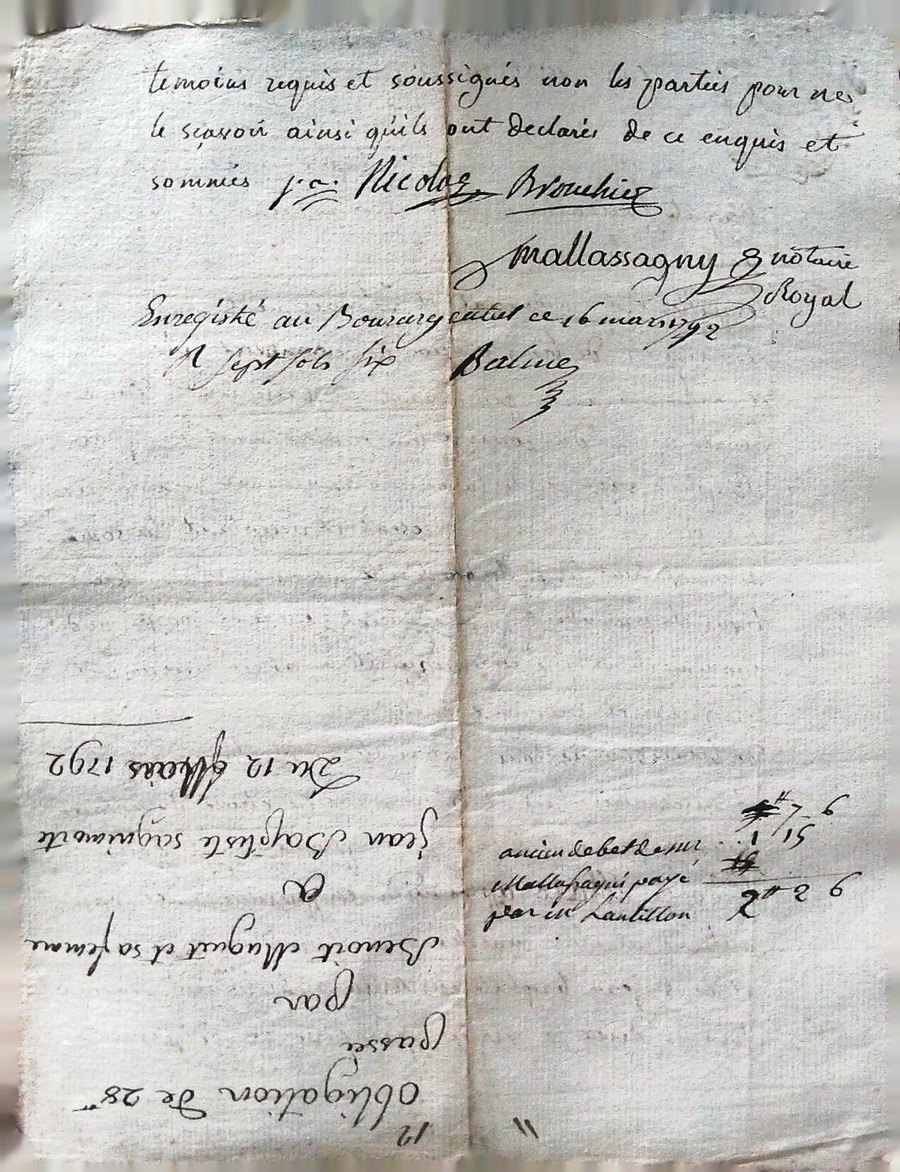 temoins requis et soussignés non les parties pour ne
le sçavoir ainsi qu'ils ont declarés de ce enquis et
sommés j. a. Nicolas Brouchier
Mallassagny notaire
Royal
Enregistré au Bourargental ce 16 mars 1792
R sept sols six Balme
7 9
ancien debet de mr 1 15
Mallassagni payé
par mr Lantillon 2 9
12
obligation de 28
passée
par
Benoit Muguet et sa femme
a
jean Baptiste sagnimorte
Du 12 Mars 1792